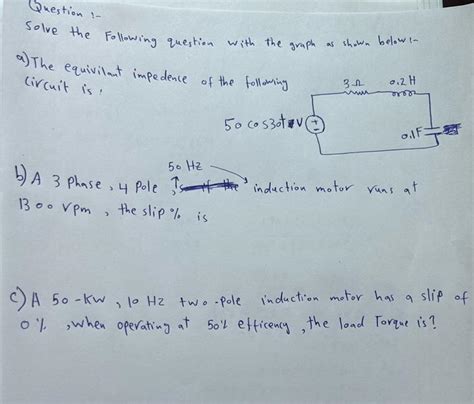 Question :-
Solve the Following question with the graph as shown below:-
a) The equivilant impedence of the following
Circuit is :
3 Ω 0.2 H
50 cos30t V
0.1F
50 Hz
b) A 3 phase, 4 Pole, induction motor runs at
1300 rpm, the slip % is
c) A 50-KW, 10 Hz two-pole induction motor has a slip of
0 %, when operating at 50% efficency, the load Torque is?